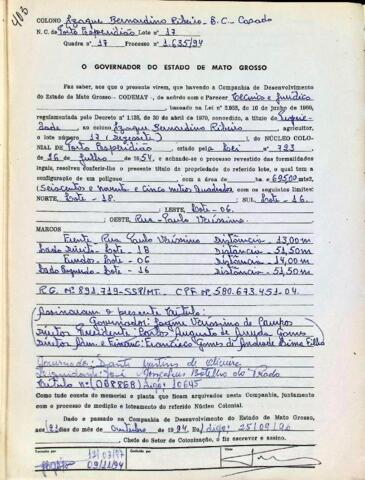 403
COLONO Izaque Bernardino Ribeiro - B.C - Casado
N. C. de Porto Esperidião Lote n.º 17
Quadra n.º 17 Processo n.º 1.635/94
O GOVERNADOR DO ESTADO DE MATO GROSSO
Faz saber, aos que o presente virem, que havendo a Companhia de Desenvolvimento
do Estado de Mato Grosso - CODEMAT -, de acôrdo com o Parecer Técnico e Jurídico
baseado na Lei n.º 2.938, de 10 de junho de 1969,
regulamentada pelo Decreto n.º 1.138, de 30 de abril de 1970, concedido, a título de
ao colono Izaque Bernardino Ribeiro, agricultor,
o lote número 17 do NÚCLEO COLO-
NIAL DE Porto Esperidião, criado pela Lei n.º 723
de 16 de Julho de 1954, e achando-se o processo revestido das formalidades
legais, resolveu conferir-lhe o presente título de propriedade do referido lote, o qual tem a
configuração de um polígono com a área de ha = 695,00 mts²
(Seiscentos e noventa e cinco metros Quadrados) com os seguintes limites:
NORTE, Lote - 18. SUL, Lote - 16.
LESTE, Lote - 06.
OESTE, Rua - Paulo Veríssimo
MARCOS
Frente Rua Paulo Veríssimo Distância - 13,00 m
Lado Direito - Lote - 18 Distância - 51,50 m
Fundos - Lote - 06 Distância - 14,00 m
Lado Esquerdo - Lote - 16 Distância - 51,50 m
R.G. Nº 891.719-SSP/MT. CPF Nº 580.673.451-04.
Assinaram o presente título:
Governador: Jayme Veríssimo de Campos
Diretor Presidente: Carlos Augusto de Arruda Gomes
Diretor Adm e Financ: Francisco Gomes de Andrade Lima Filho
Governador: Dante Martins de Oliveira
José Gonçalves Botelho do Prado
Título nº (008868) digo: 10645
Como tudo consta do memorial e planta que ficam arquivados nesta Companhia, juntamente
com o processo de medição e loteamento do referido Núcleo Colonial.
Dado e passado na Companhia de Desenvolvimento do Estado de Mato Grosso,
aos 21 dias do mês de outubro de 1994. Eu, digo: 25/09/96
Chefe do Setor de Colonização, o fiz escrever e assino.
12/03/97
09/11/94